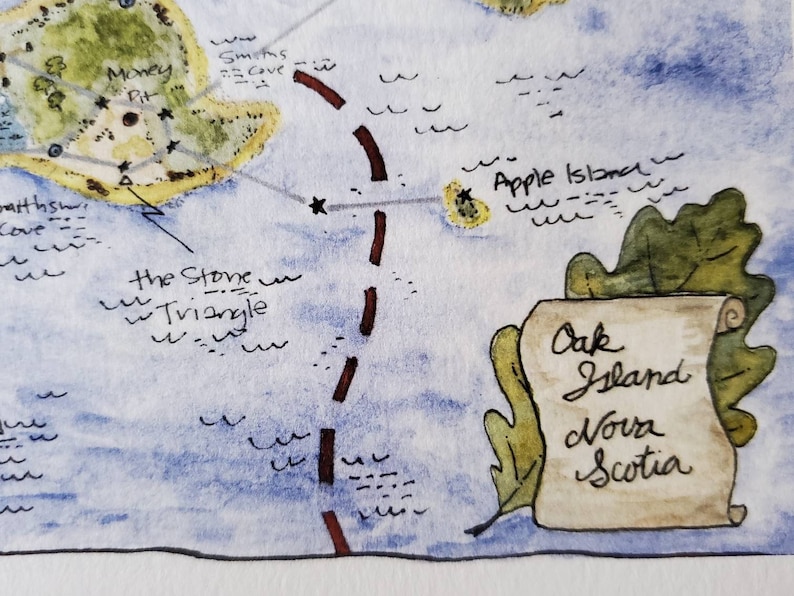 Smiths
Cove
Money
Pit
Apple Island
Cove
the Stone
Triangle
Oak
Island
Nova
Scotia